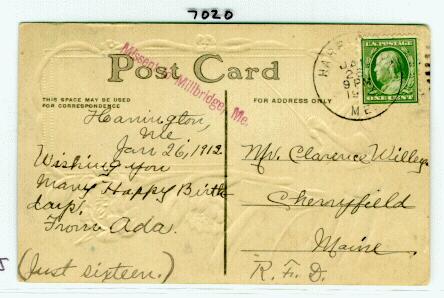 7020
Missent to Millbridge, Me.
Post Card
THIS SPACE MAY BE USED
FOR CORRESPONDENCE
FOR ADDRESS ONLY
U.S. POSTAGE
ONE CENT
9 P
ME.
Harrington,
Me
Jan 26, 1912.
Wishing you
Many Happy Birth
days!
From Ada.
(Just sixteen.)
Mr. Clarence Willey
Cherryfield
Maine
R. F. D.